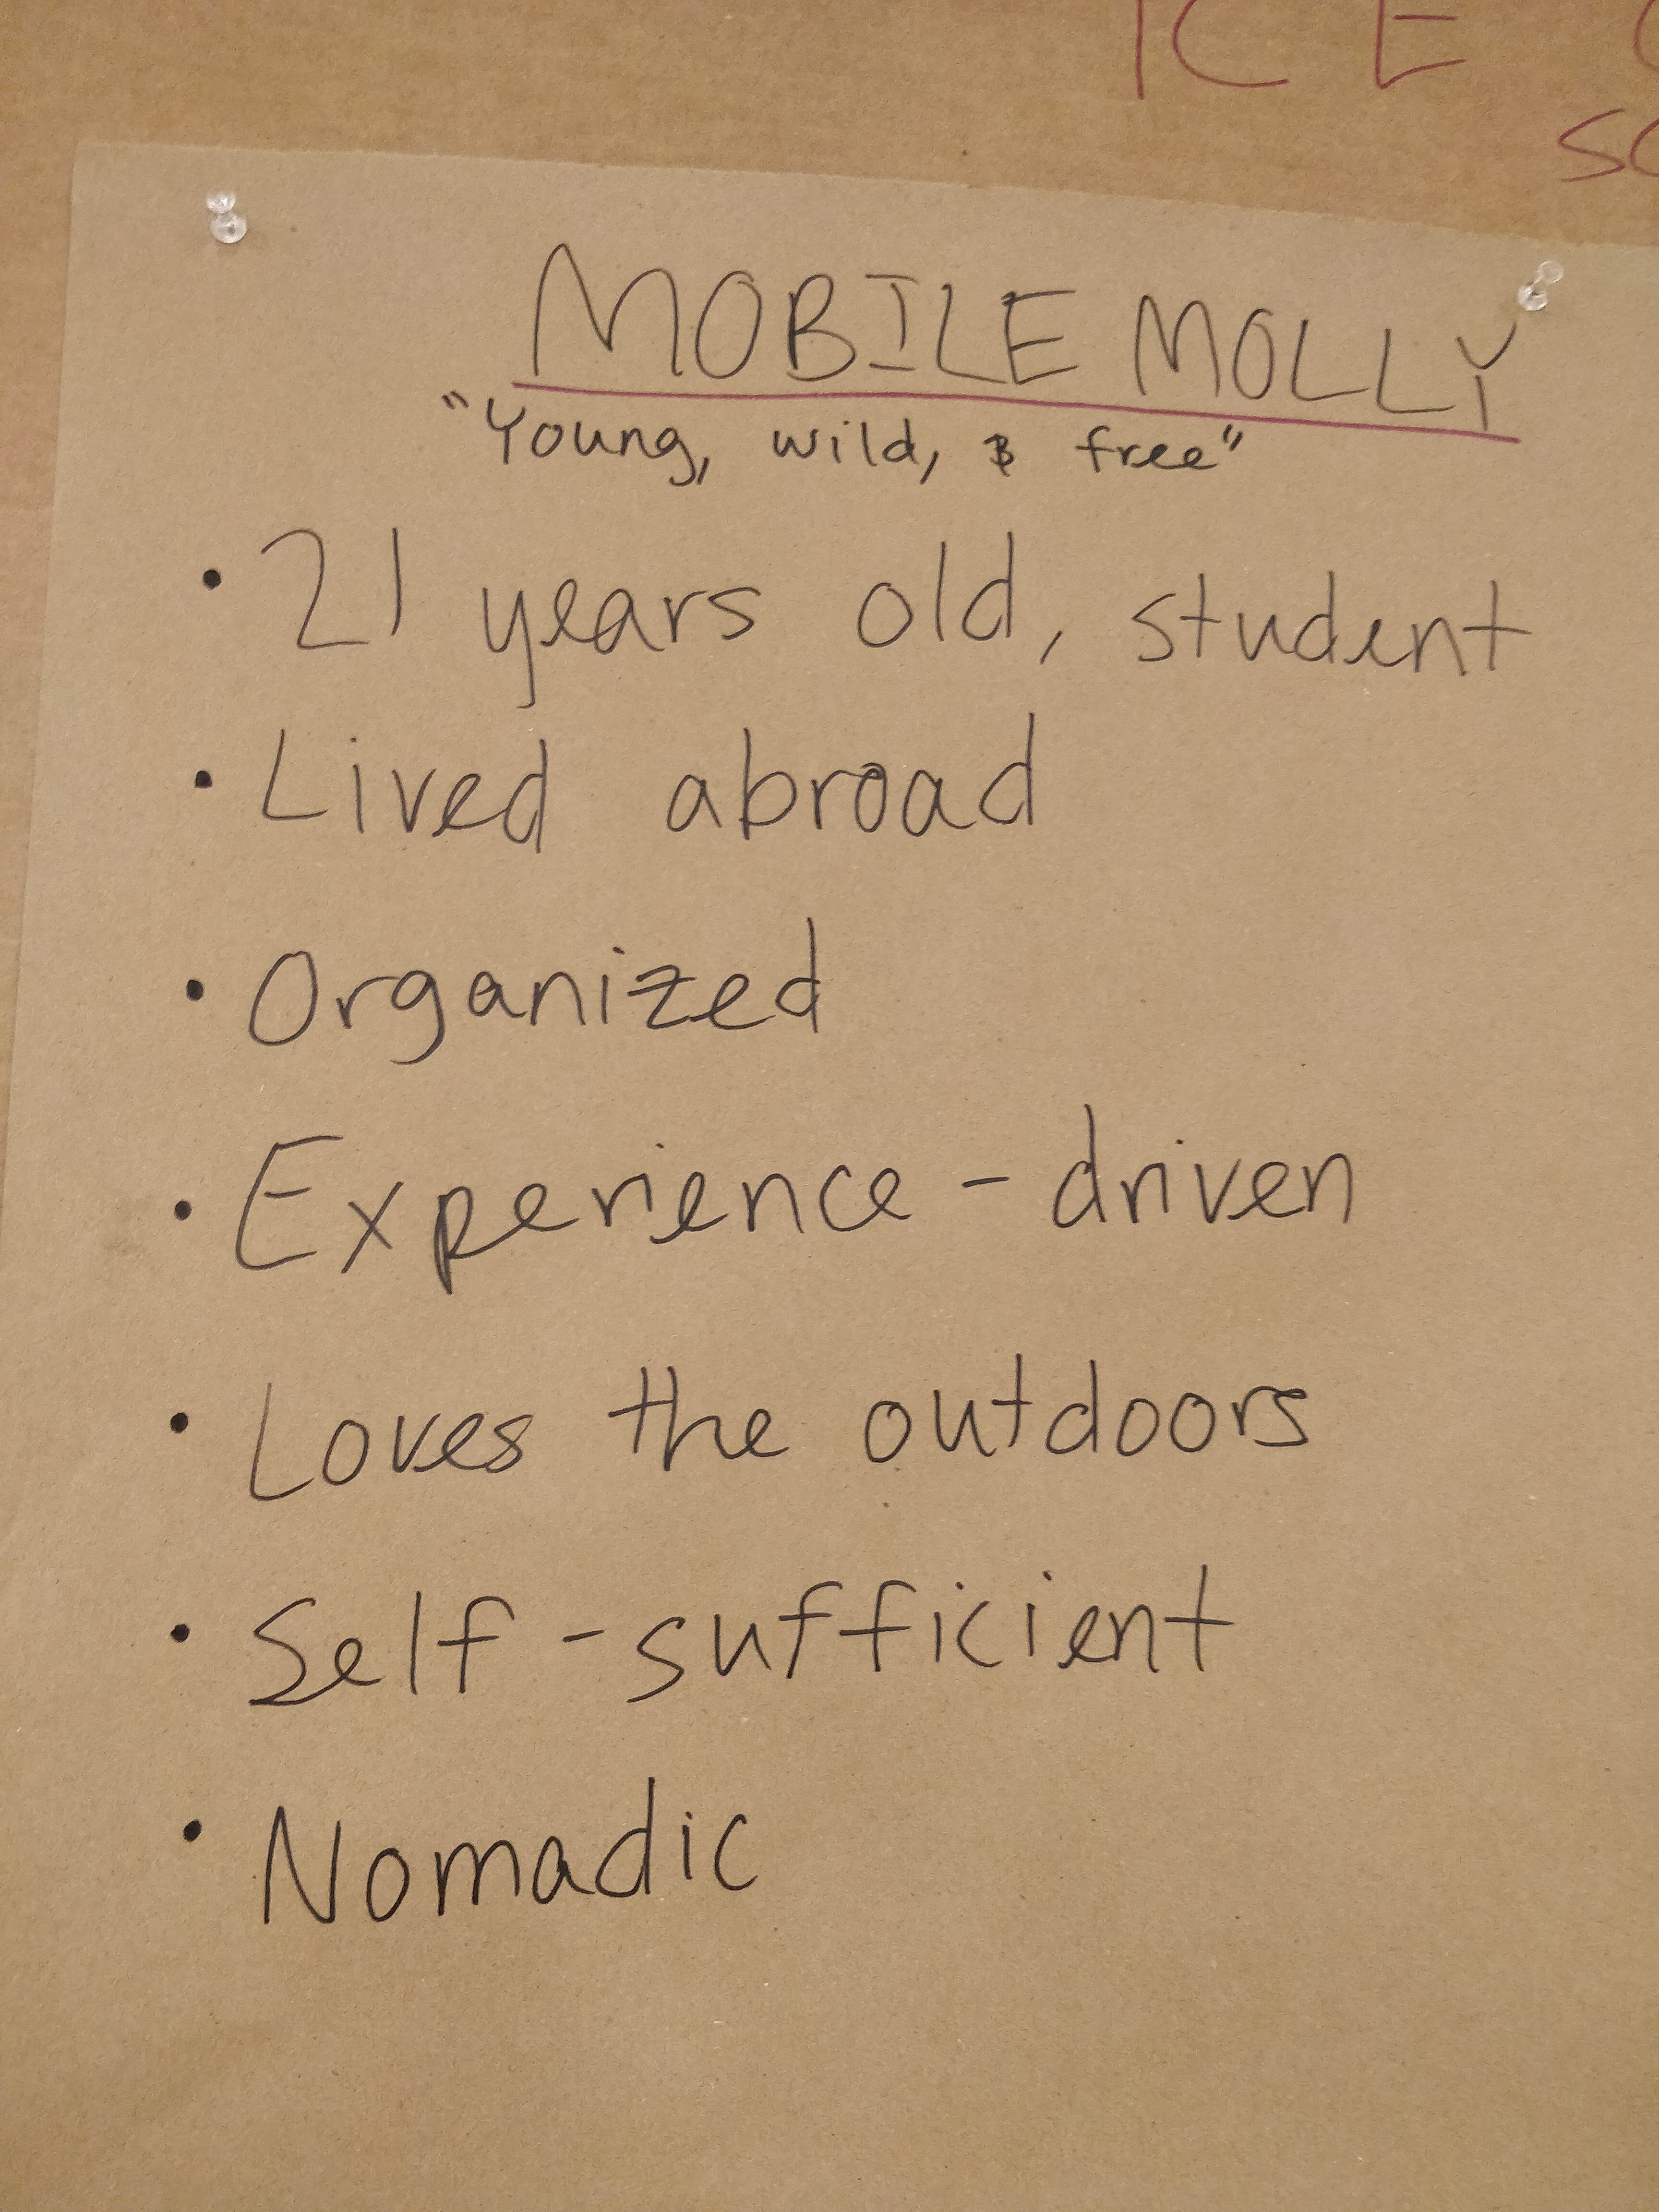 ICE
MOBILE MOLLY
"Young, wild, & free"
• 21 years old, student
• Lived abroad
• Organized
• Experience-driven
• Loves the outdoors
• Self-sufficient
• Nomadic